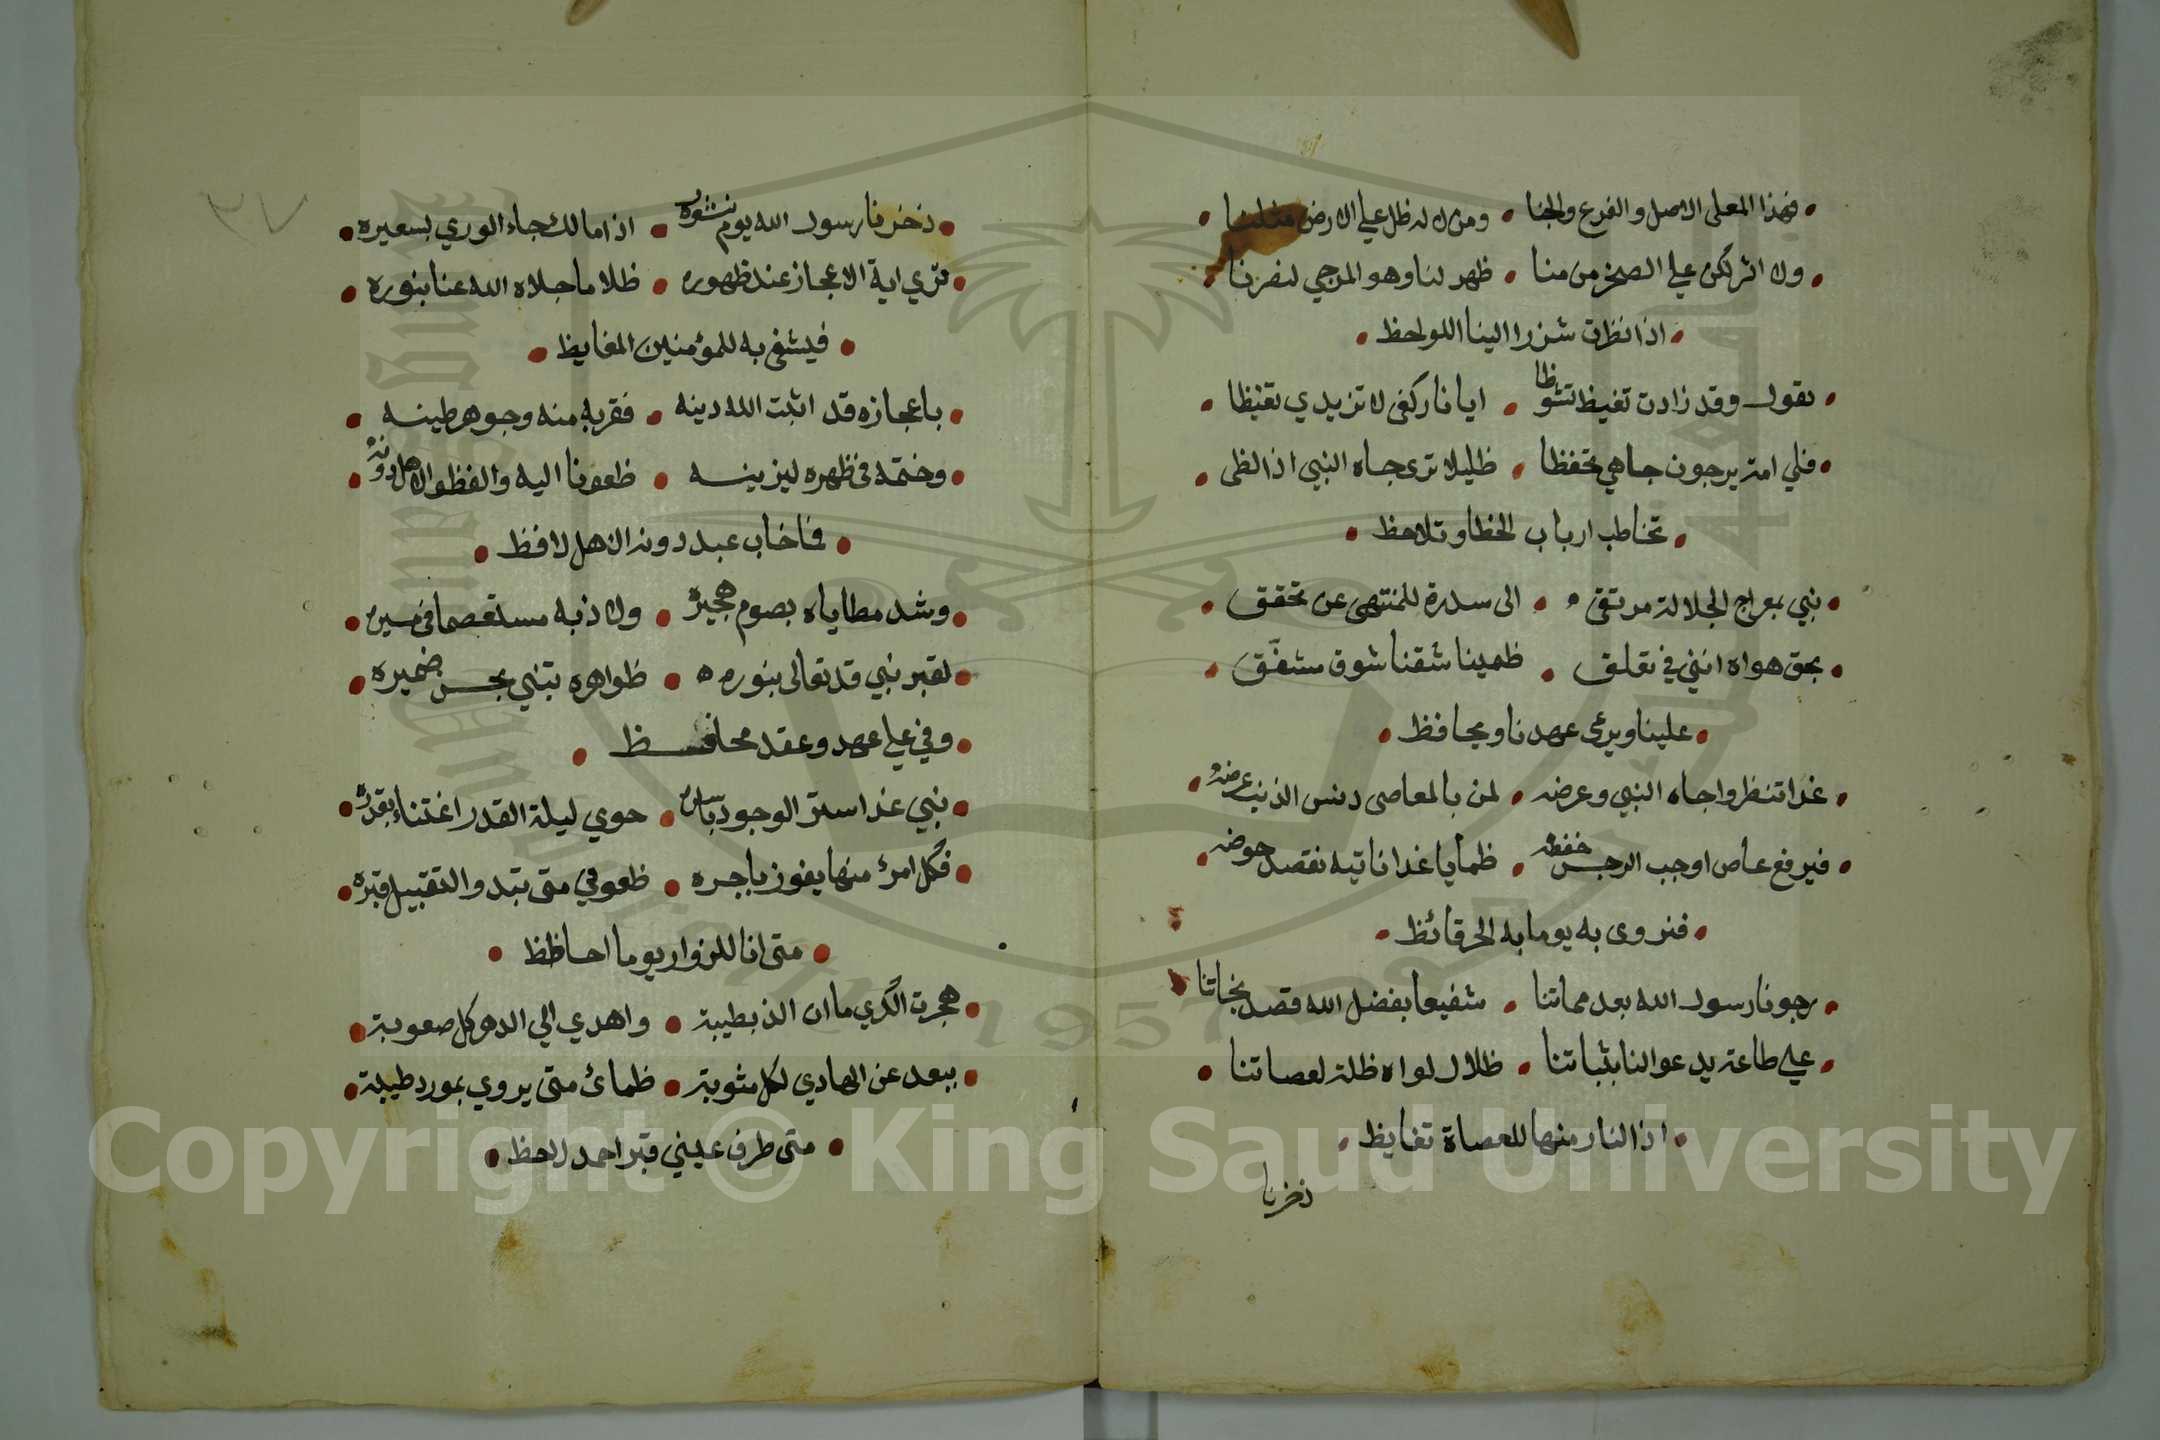 فهذا المعلى الاصل والفرع والجنا ومن لا له ظل علي الارض مثلنا
ولا اثر لكن علي الصخر من منا ظهر لنا وهو المرجي لنفرنا
اذا نظرت شزرا الينا اللواحظ
يقول وقد زادت تغيظ تشوظا ايا نار كفى لا تزيدي تغيظا
فلي امة يرجون جاهي تحفظا ظليلا ترى جاه النبي اذا لظى
تخاطب ارباب الخطا وتلاحظ
نبي بمعراج الجلالة مرتقى الى سدرة للمنتهى عن تحقق
بحق هواه انني في تعلق ظمينا شقنا شوق مشفق
علينا ويرعى عهدنا ويحافظ
غدا تنظروا جاه النبي وعرضه لمن بالمعاصى دنس الذنب عرضه
فيرفع عاص اوجب الرجس خفضه ظمايا غدا ناتيه نقصد حوضه
فنروى به يوما به الحر قائظ
رجونا رسول الله بعد مماتنا شفيعا بفضل الله قصد نجاتنا
علي طاعة يدعو النا بثباتنا ظلال لواه ظلة لعصاتنا
اذا النار منها للعصاة تغايظ
ذخرنا
ذخرنا رسول الله يوم نشوره اذا مالك جاء الوري بسعيره
تري اية الاعجاز عند ظهوره ظلاما جلاه الله عنا بنوره
فيشفى به للمؤمنين المغايظ
باعجازه قد اثبت الله دينه فقربه منه وجوهر طينه
وختمه فى ظهره ليزينه ظعونا اليه والفظوا الاهل دونه
فما خاب عبد دونه الاهل لافظ
وشد مطاياه بصوم هجيره ولاذ به مستعصما فى مسيره
لقبر نبي قد تعالى بنوره ظواهره تبني بحسن ضميره
وفي علي عهد وعقد محافظ
نبي غدا ستر الوجود باسره حوي ليلة القدر اغتناء بقدره
فكل امرئ منها يفوز باجره ظعوني متى تبدو التقبيل قبره
متى انا للزوار يوما احاظظ
هجرت الكري ما ان الذ بطيبة واهدي الي الدهر كل صعوبة
ببعد عن الهادي لكل مثوبة ظمائ متى يروي بمورد طيبة
متى طرف عيني قبر احمد لاحظ
Copyright © King Saud University
1957